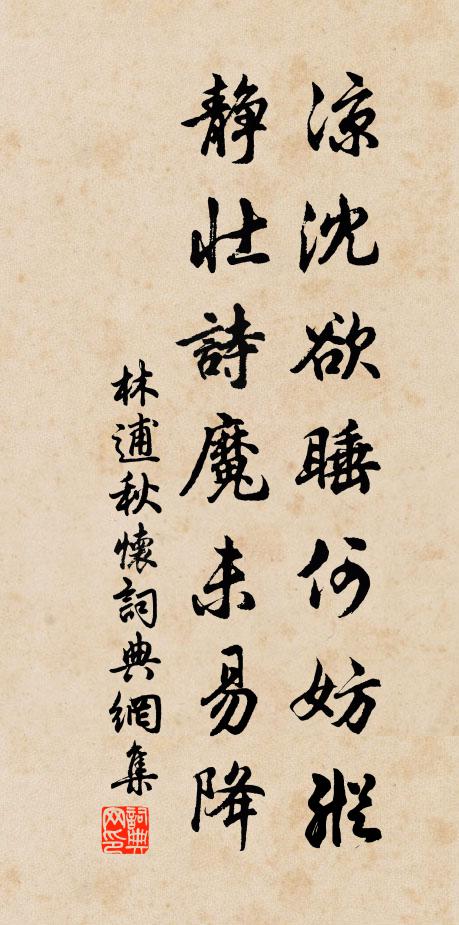 涼沈欲睡何妨縱
靜壯詩魔未易降
林逋秋懷詞典網集
詞典網印